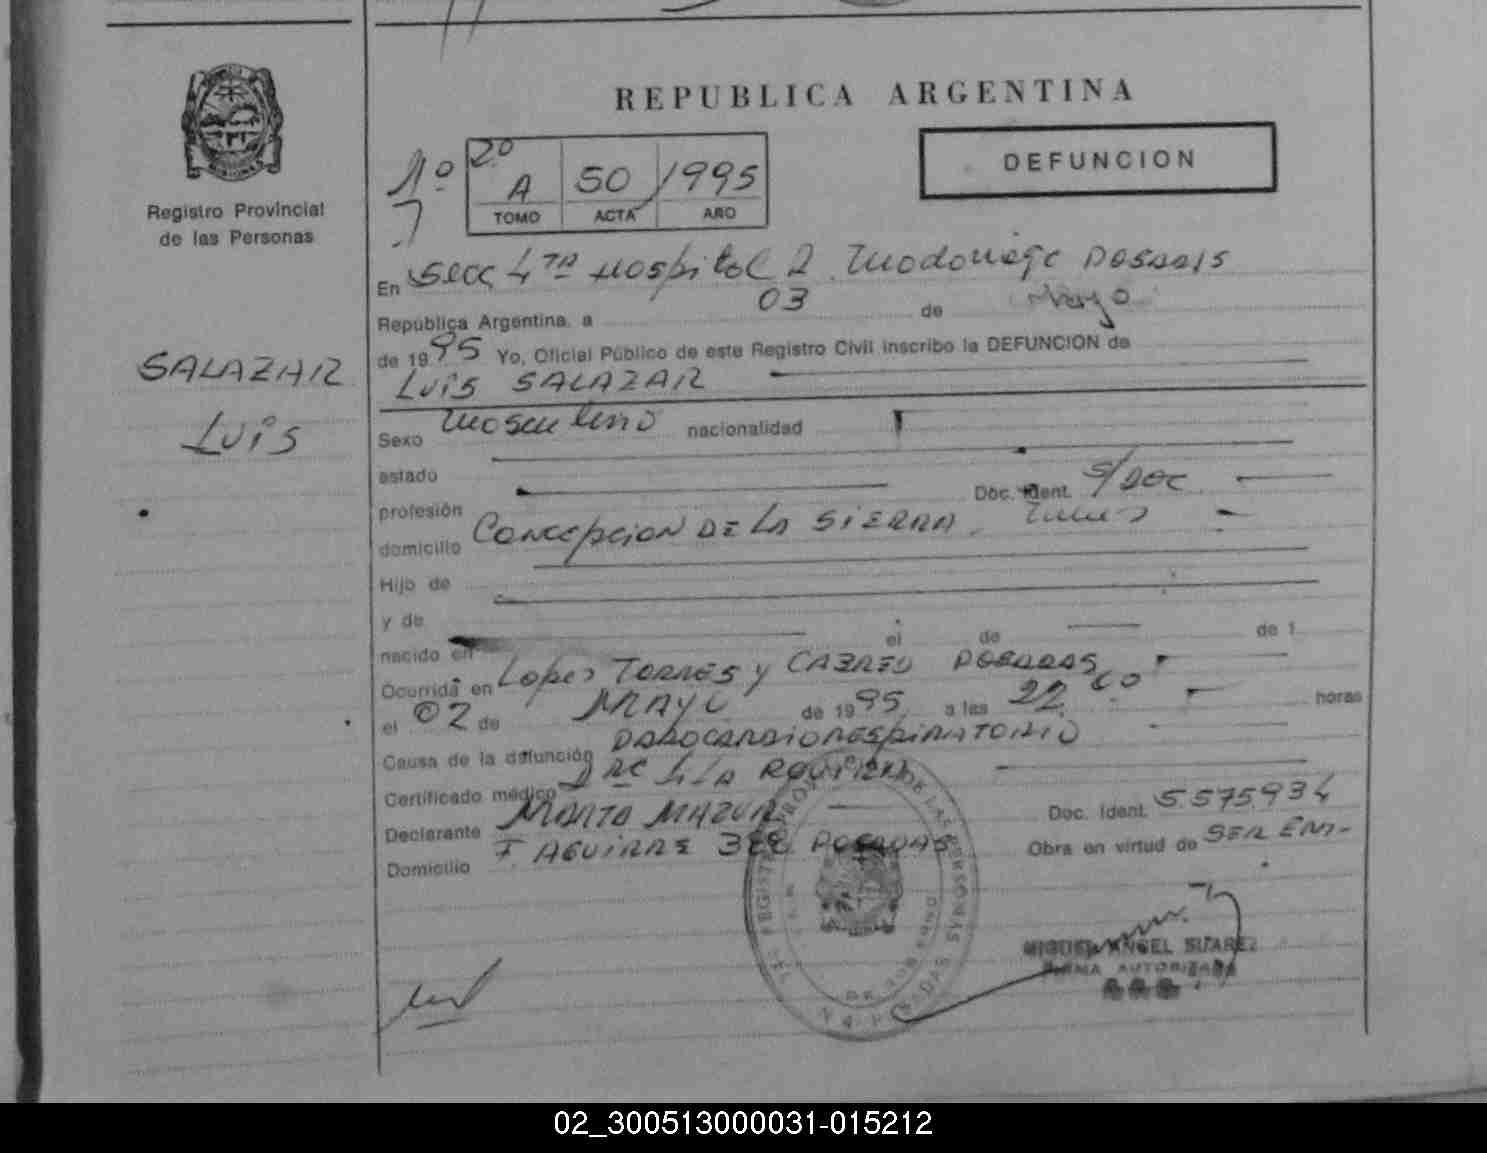 REPUBLICA ARGENTINA
DEFUNCION
1º
2º
A 50 1995
TOMO ACTA AÑO
Registro Provincial
de las Personas
SALAZAR
LUIS
En Secc 4TA Hospital R. Madariaga Posadas
República Argentina, a 03 de Mayo
de 1995 Yo, Oficial Público de este Registro Civil inscribo la DEFUNCION de
LUIS SALAZAR
Sexo Masculino nacionalidad
estado
profesión Doc. Ident. S/DOC
domicilio CONCEPCION DE LA SIERRA
Hijo de
y de
nacido en el de de 1
Ocurrida en Lopez TORRES y CABRED POSADAS
el 02 de MAYO de 1995 a las 22 horas
Causa de la defunción PAROCARDIORESPIRATORIO
Certificado médico
Declarante MARTA MAZUR Doc. Ident. 5575934
Domicilio F AGUIRRE POSADAS Obra en virtud de SER EM-
MIGUEL ANGEL SUAREZ
FIRMA AUTORIZADA
02_300513000031-015212